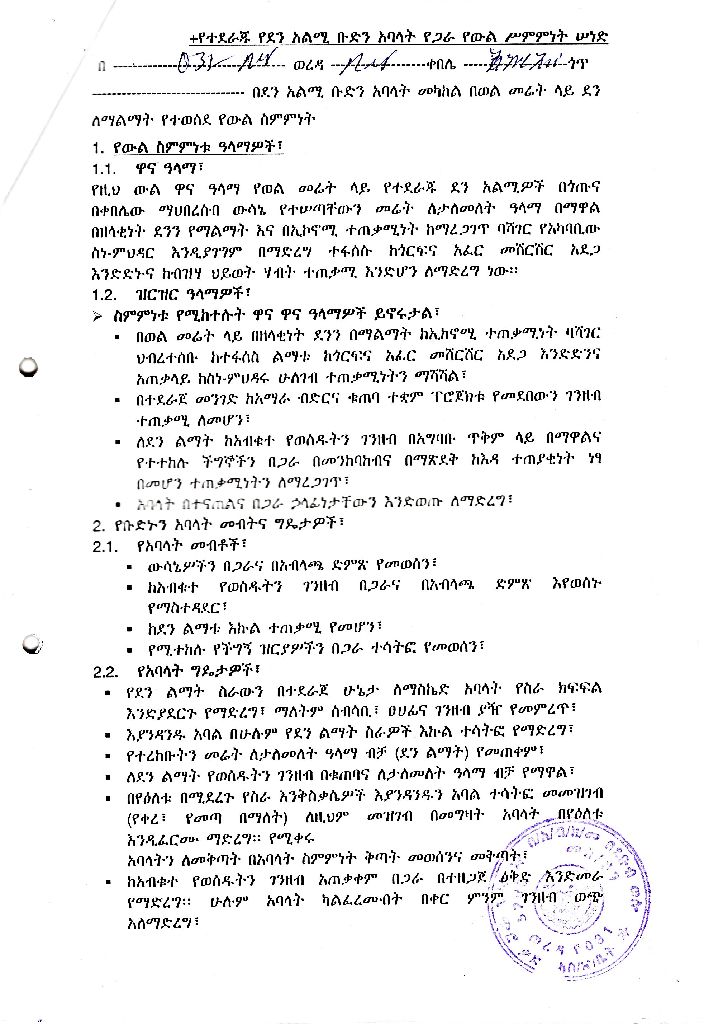 +የተደራጁ የደን አልሚ ቡድን አባላት የጋራ የውል ሥምምነት ሠነድ
በ ---------------- ወረዳ ---------------- ቀበሌ ---------------- ጎጥ
------------------------------ በደን አልሚ ቡድን አባላት መካከል በወል መሬት ላይ ደን
ለማልማት የተወሰደ የውል ስምምነት
1. የውል ስምምነቱ ዓላማዎች፣
1.1. ዋና ዓላማ፣
የዚህ ውል ዋና ዓላማ የወል መሬት ላይ የተደራጁ ደን አልሚዎች በጎጡና
በቀበሌው ማህበረሰብ ውሳኔ የተሠጣቸውን መሬት ለታለመለት ዓላማ በማዋል
በዘላቂነት ደንን የማልማት እና በኢኮኖሚ ተጠቃሚነት ከማረጋገጥ ባሻገር የአካባቢው
ስነ-ምህዳር እንዲያገግም በማድረግ ተፋሰሱ ከጎርፍና አፈር መሸርሸር አደጋ
እንድድኑና ከብዝሃ ህይወት ሃብት ተጠቃሚ እንድሆን ለማድረግ ነው፡፡
1.2. ዝርዝር ዓላማዎች፣
➢ ስምምነቱ የሚከተሉት ዋና ዋና ዓላማዎች ይኖሩታል፣
▪ በወል መሬት ላይ በዘላቂነት ደንን በማልማት ከኢኮኖሚ ተጠቃሚነት ባሻገር
ህብረተሰቡ ከተፋሰስ ልማቱ ከጎርፍና አፈር መሸርሸር አደጋ እንድድንና
አጠቃላይ ከስነ-ምህዳሩ ሁለገብ ተጠቃሚነትን ማሻሻል፣
▪ በተደራጀ መንገድ ከአማራ ብድርና ቁጠባ ተቋም ፕሮጀክቱ የመደበውን ገንዘብ
ተጠቃሚ ለመሆን፣
▪ ለደን ልማት ከአብቁተ የወሰዱትን ገንዘብ በአግባቡ ጥቅም ላይ በማዋልና
የተተከሉ ችግኞችን በጋራ በመንከባከብና በማጽደቅ ከእዳ ተጠያቂነት ነፃ
በመሆን ተጠቃሚነትን ለማረጋገጥ፣
▪ አባላት በተናጠልና በጋራ ኃላፊነታቸውን እንድወጡ ለማድረግ፣
2. የቡድኑን አባላት መብትና ግዴታዎች፣
2.1. የአባላት መብቶች፣
▪ ውሳኔዎችን በጋራና በአብላጫ ድምጽ የመወሰን፣
▪ ከአብቁተ የወሰዱትን ገንዘብ በጋራና በአብላጫ ድምጽ እየወሰኑ
የማስተዳደር፣
▪ ከደን ልማቱ እኩል ተጠቃሚ የመሆን፣
▪ የሚተከሉ የችግኝ ዝርያዎችን በጋራ ተሳትፎ የመወሰን፣
2.2. የአባላት ግዴታዎች፣
▪ የደን ልማት ስራውን በተደራጀ ሁኔታ ለማስኬድ አባላት የስራ ክፍፍል
እንድያደርጉ የማድረግ፣ ማለትም ሰብሳቢ፣ ፀሀፊና ገንዘብ ያዥ የመምረጥ፣
▪ እያንዳንዱ አባል በሁሉም የደን ልማት ስራዎች እኩል ተሳትፎ የማድረግ፣
▪ የተረከቡትን መሬት ለታለመለት ዓላማ ብቻ (ደን ልማት) የመጠቀም፣
▪ ለደን ልማት የወሰዱትን ገንዘብ በቁጠባና ለታለመለት ዓላማ ብቻ የማዋል፣
▪ በየዕለቱ በሚደረጉ የስራ እንቅስቃሴዎች እያንዳንዱን አባል ተሳትፎ መመዝገብ
(የቀረ፣ የመጣ በማለት) ለዚህም መዝገብ በመግዛት አባላት በየዕለቱ
እንዲፈርሙ ማድረግ፡፡ የሚቀሩ
አባላትን ለመቅጣት በአባላት ስምምነት ቅጣት መወሰንና መቅጣት፣
▪ ከአብቁተ የወሰዱትን ገንዘብ አጠቃቀም በጋራ በተዘጋጀ ዕቅድ እንድመራ
የማድረግ፡፡ ሁሉም አባላት ካልፈረሙበት በቀር ምንም ገንዘብ ወጭ
አለማድረግ፣